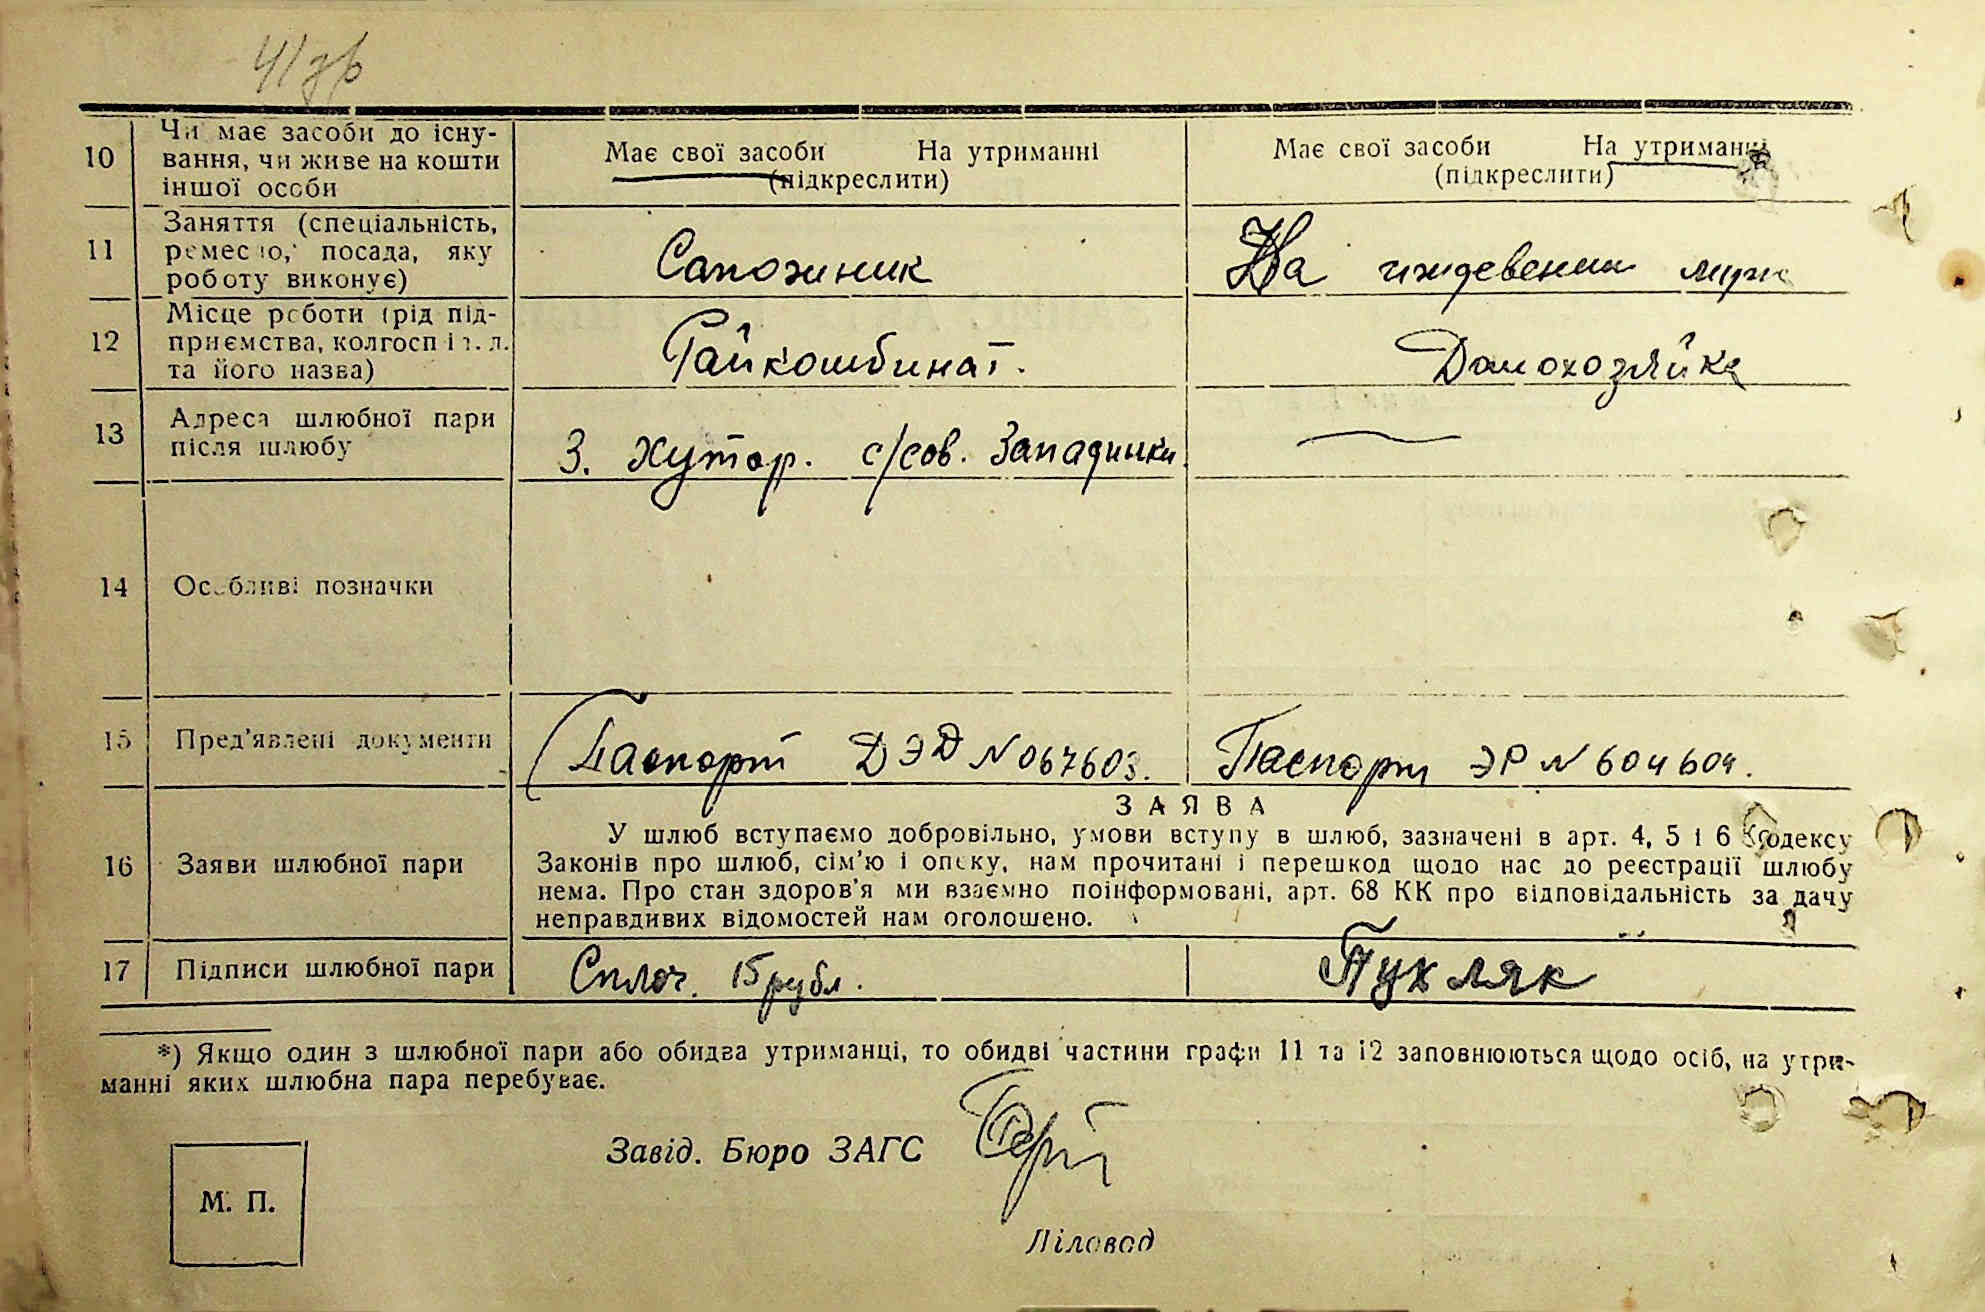 10
Чи має засоби до існу-
вання, чи живе на кошти
іншої особи
Має свої засоби На утриманні
(підкреслити)
Має свої засоби На утриманні
(підкреслити)
11
Заняття (спеціальність,
ремесло, посада, яку
роботу виконує)
Сапожник
На иждевении мужа
12
Місце роботи (рід під-
приємства, колгосп і т. д.
та його назва)
Райкомбинат.
Домохозяйка
13
Адреса шлюбної пари
після шлюбу
З. Хутор. с/сов. Западинки
14
Особливі позначки
15
Пред’явлені документи
Паспорт ДЭД N 067603.
Паспорт ЭР N 604604.
16
Заяви шлюбної пари
ЗАЯВА
У шлюб вступаємо добровільно, умови вступу в шлюб, зазначені в арт. 4, 5 і 6 Кодексу
Законів про шлюб, сім’ю і опеку, нам прочитані і перешкод щодо нас до реєстрації шлюбу
нема. Про стан здоров’я ми взаємно поінформовані, арт. 68 КК про відповідальність за дачу
неправдивих відомостей нам оголошено.
17
Підписи шлюбної пари
Сплоч. 15 рубл.
Пухляк
*) Якщо один з шлюбної пари або обидва утриманці, то обидві частини графи 11 та 12 заповнюються щодо осіб, на утри-
манні яких шлюбна пара перебуває.
Завід. Бюро ЗАГС
М. П.
Діловод